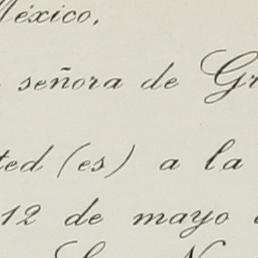 México.
señora de
(es) a la
12 de mayo